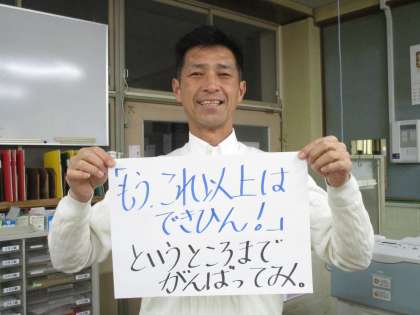 「もう、これ以上は
できひん！」
というところまで
がんばってみ。